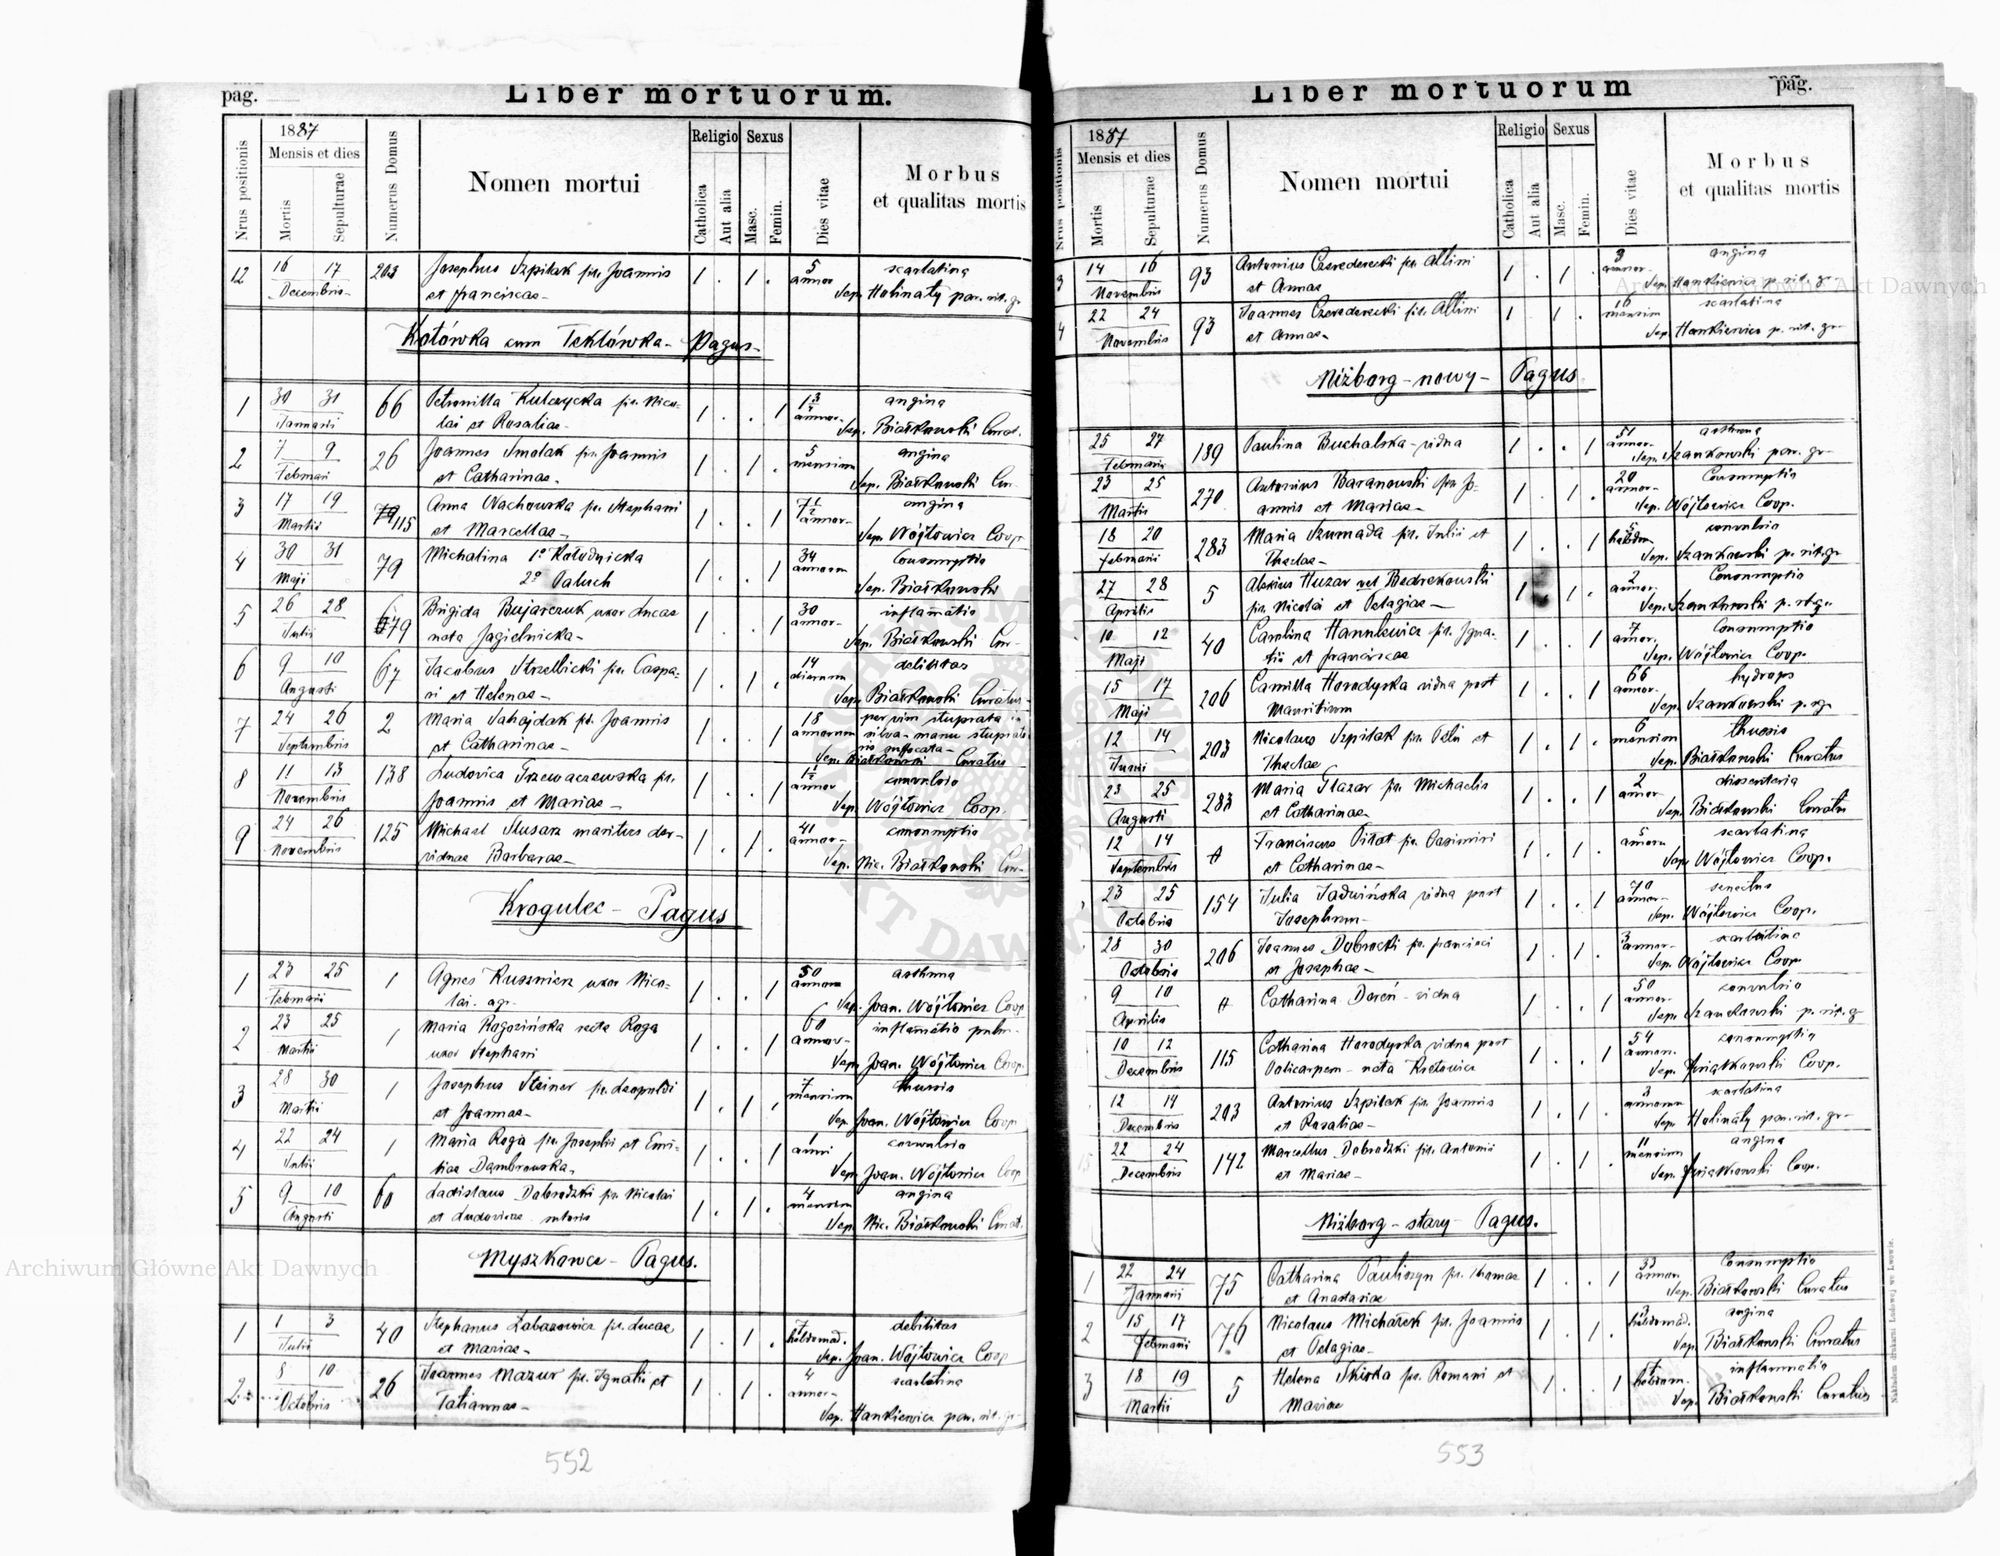 pag.
Liber mortuorum.
Nrus positionis
1887
Mensis et dies
Mortis
Sepulturae
Numerus Domus
Nomen mortui
Religio
Catholica
Aut alia
Sexus
Masc.
Femin.
Dies vitae
Morbus
et qualitas mortis
12 16 17 Decembris 203 Josephus Szpilak fil. Joannis 1 . 1 . 5 annor scarlatina
et Franciscae Sep. Holinaty par. rit. gr
Kotówka cum Teklówka - Pagus
1 30 31 Januarii 66 Petronilla Kulczycka fil. Nico-
lai et Rosaliae 1 . . 1 annor angina
Sep. Białkowski Curat.
2 7 9 Februari 26 Joannes Smolak fil. Joannis
et Catharinae 1 . 1 . 5 mensium angina
Sep. Białkowski Cur
3 17 19 Martii 115 Anna Wachowska fil. Stephani
et Marcellae 1 . . 1 annor angina
Sep. Wójtowicz Coop
4 30 31 Maji 79 Michalina 1º Kołodnicka
2º Paluch 1 . . 1 34 annorum Consumptio
Sep. Białkowski
5 26 28 Julii 79 Brigida Bujarczuk uxor Lucae
nata Jagielnicka 1 . . 1 30 annor inflamatio
Sep. Białkowski Cur
6 9 10 Augusti 67 Jacobus Strzelbicki fil. Caspa-
ri et Helenae 1 . 1 . 14 dierum debilitas
Sep. Białkowski Curatus
7 24 26 Septembris 2 Maria Sahajdak fil. Joannis
et Catharinae 1 . . 1 18 annorum per vim stuprata in
silva - manu stuprato-
ris suffocata
Sep. Białkowski Curatus
8 11 13 Novembris 138 Ludovica Trzewaczewska fil.
Joannis et Mariae 1 . . 1 annor convulsio
Sep. Wójtowicz Coop.
9 24 26 Novembris 125 Michael Slusarz maritus der-
vidnae Barbarae 1 . 1 . 41 annor consumptio
Sep. Nic. Białkowski Cur
Krogulec - Pagus
1 23 25 Februarii 1 Agnes Kusznierz uxor Nico-
lai agr. 1 . . 1 50 annorum asthma
Sep. Joan. Wójtowicz Coop
2 23 25 Martii 1 Maria Rogozińska recte Roga
uxor Stephani 1 . . 1 60 annor inflamatio pulm.
Sep. Joan. Wójtowicz Coop.
3 28 30 Martii 1 Josephus Steiner fil. Leopoldi
et Joannae 1 . 1 . 7 mensium thussis
Sep. Joan. Wójtowicz Coop
4 22 24 Julii 1 Maria Roga fil. Josephi et Emi-
liae Dambrowska 1 . . 1 1 anni convulsio
Sep. Joan. Wójtowicz Coop
5 9 10 Augusti 60 Ladislaus Dobrodzki fil. Nicolai
et Ludovicae sutoris 1 . 1 . 4 mensium angina
Sep. Nic. Białkowski Curat.
Myszkowce - Pagus.
1 1 3 Julii 40 Stephanus Łabazowicz fil. Lucae
et Mariae 1 . 1 . 7 hebdomad. debilitas
Sep. Joan. Wójtowicz Coop
2 8 10 Octobris 26 Joannes Mazur fil. Ignatii et
Tatiannae 1 . 1 . 4 annor scarlatina
Sep. Hankiewicz par. rit. gr
552
Liber mortuorum
pag.
Nrus positionis
1887
Mensis et dies
Mortis
Sepulturae
Numerus Domus
Nomen mortui
Religio
Catholica
Aut alia
Sexus
Masc.
Femin.
Dies vitae
Morbus
et qualitas mortis
3 14 16 Novembris 93 Antonius Czerederecki fil. Albini
et Annae 1 . 1 . annor. angina
Sep. Hankiewicz p. rit. gr
4 22 24 Novembris 93 Joannes Czerederecki fil. Albini
et Annae 1 1 . 16 mensium scarlatina
Sep. Hankiewicz p. rit. gr
Niżborg - nowy - Pagus
25 27 Februarii 189 Paulina Buchalska - vidua 1 . . 1 51 annor. asthma
Sep. Szankowski par. gr
23 25 Martii 270 Antonius Baranowski fil. Jo-
annis et Mariae 1 . 1 . 20 annor Consumptio
Sep. Wójtowicz Coop.
18 20 Februarii 283 Maria Szumada fil. Julii et
Theclae 1 . . 1 5 hebdom. convulsio
Sep. Szankowski p. rit. gr
27 28 Aprilis 5 Alexius Huzar vel Bedrekowski
fil. Nicolai et Pelagiae 1 1 . 2 annor. Consumptio
Sep. Szankowski p. rit. gr.
10 12 Maji 40 Carolina Hannkewicz fil. Igna-
tii et Franciscae 1 . . 1 7 annor. Consumptio
Sep. Wójtowicz Coop.
15 17 Maji 206 Camilla Horodyska vidua post
Mauritium 1 . . 1 66 annor. hydrops
Sep. Szankowski p. rg.
12 14 Junii 203 Nicolaus Szpilak fil. Petri et
Theclae 1 . 1 . 6 mensium thussis
Sep. Białkowski Curatus
23 25 Augusti 283 Maria Glazar fil. Michaelis
et Catharinae 1 . . 1 2 annor. dissenteria
Sep. Białkowski Curatus
12 14 Septembris Franciscus Piłat fil. Casimiri
et Catharinae 1 . 1 . 5 annorum scarlatina
Sep. Wójtowicz Coop.
23 25 Octobris 154 Julia Jadwińska vidua post
Josephum 1 . . 1 70 annor. senectus
Sep. Wójtowicz Coop.
28 30 Octobris 206 Joannes Dobrocki fil. Francisci
et Josephae 1 . 1 . 3 annor scarlatina
Sep. Wójtowicz Coop
9 10 Aprilis Catharina Dereń - vidua 1 . . 1 50 annor. convulsio
Sep. Szankowski p. rit. g
10 12 Decembris 115 Catharina Horodyska vidua post
Policarpem - nata Kretowicz 1 . . 1 54 annor. consumptio
Sep. Kwiatkowski Coop.
12 14 Decembris 203 Antonius Szpilak fil. Joannis
et Rosaliae 1 . 1 . 3 annorum scarlatina
Sep. Holinaty par. rit. gr
22 24 Decembris 142 Marcellus Dobrodzki fil. Antonii
et Mariae 1 . 1 . 11 mensium angina
Sep. Kwiatkowski Coop.
Niżborg - stary - Pagus.
1 22 24 Januarii 75 Catharina Pauliszyn fil. Thomae
et Anastasiae 1 . . 1 annor. Consumptio
Sep. Białkowski Curatus
2 15 17 Februarii 76 Nicolaus Michałek fil. Joannis
et Pelagiae 1 . 1 . hebdomad. angina
Sep. Białkowski Curatus
3 18 19 Martii 5 Helena Skirka fil. Romani et
Mariae 1 . . 1 hebdom. inflammatio
Sep. Białkowski Curatus
Nakładem drukarni Ludowej we Lwowie.
553
Archiwum Główne Akt Dawnych
Archiwum Główne Akt Dawnych
ARCHIWUM GŁÓWNE AKT DAWNYCH